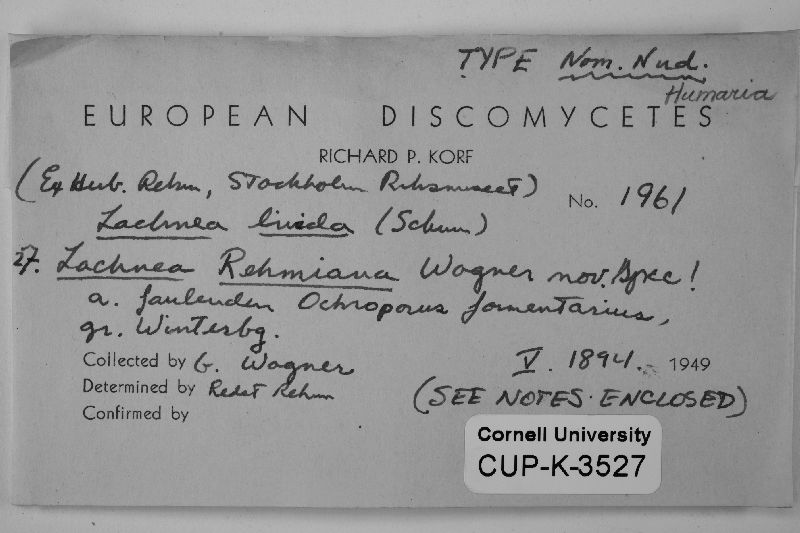 TYPE Nom. Nud.
Humaria
EUROPEAN DISCOMYCETES
RICHARD P. KORF
(Ex Herb. Rehm, Stockholm Riksmuseet)
No. 1961
Lachnea livida (Schum)
27. Lachnea Rehmiana Wagner nov. Spec!
a. faulenden Ochroporus fomentarius,
gr. Winterbg.
Collected by G. Wagner
V. 1894. 1949
Determined by Redet Rehm
(SEE NOTES ENCLOSED)
Confirmed by
Cornell University
CUP-K-3527